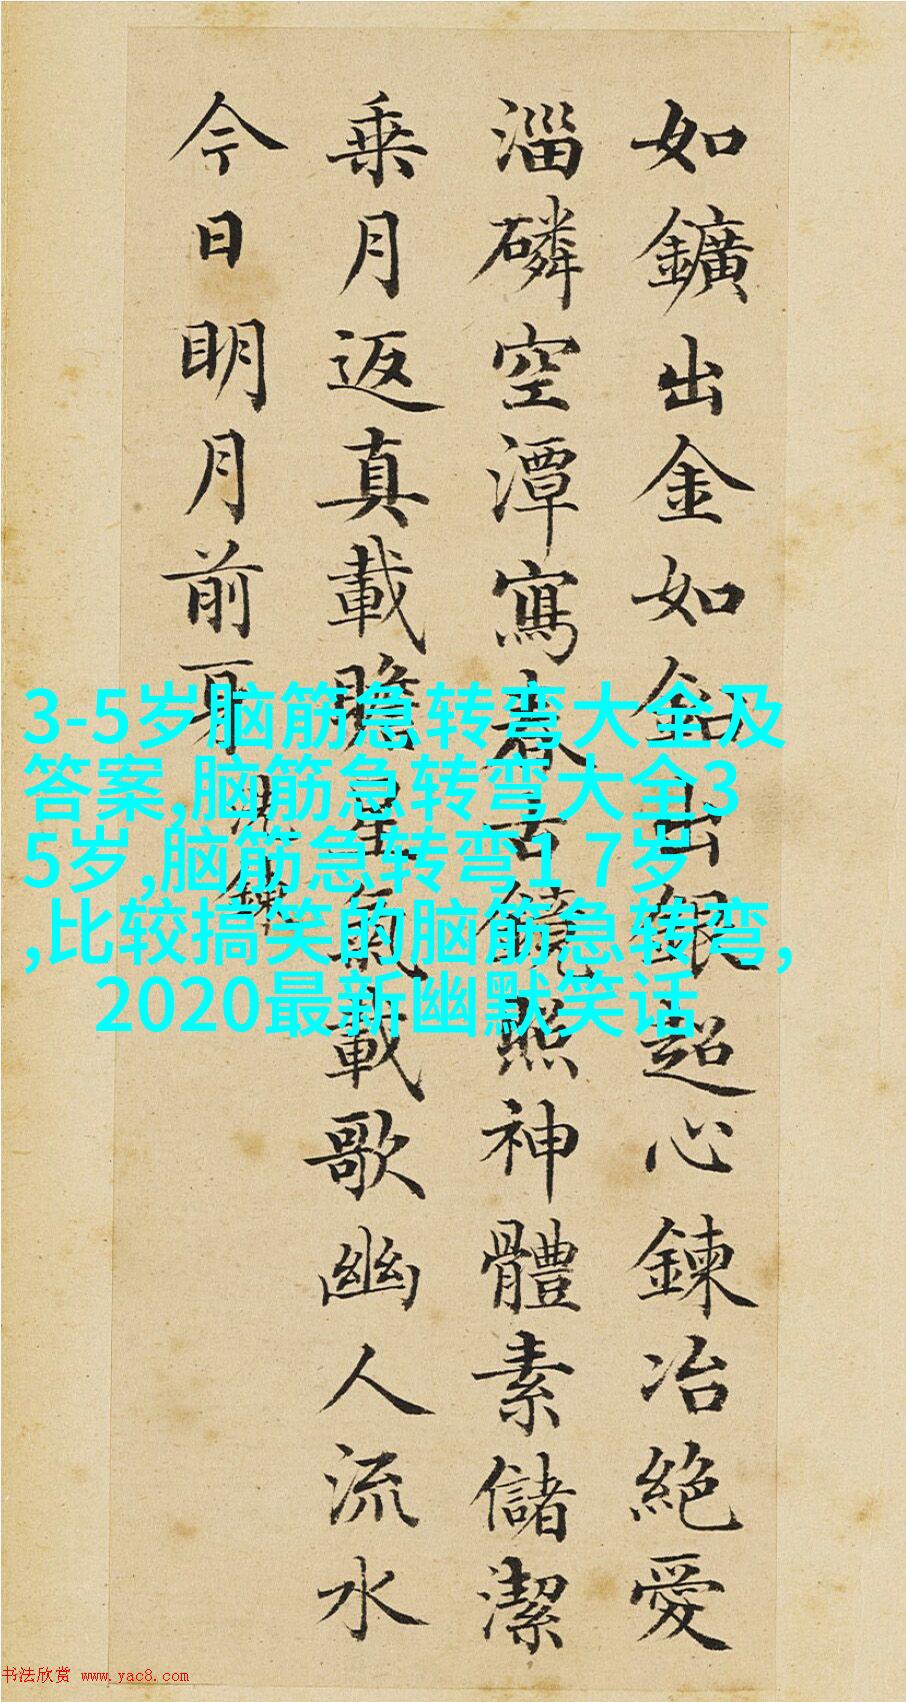 如鑛出金如鉛出銀超心鍊冶絕愛
淄磷空潭寫春古鏡照神體素儲潔
乗月返真載瞻星氣載歌幽人流水
今日明月前身
洗鍊
3-5岁脑筋急转弯大全及
答案,脑筋急转弯大全3
5岁,脑筋急转弯1 7岁
,比较搞笑的脑筋急转弯,
2020最新幽默笑话
书法欣赏 www.yac8.com